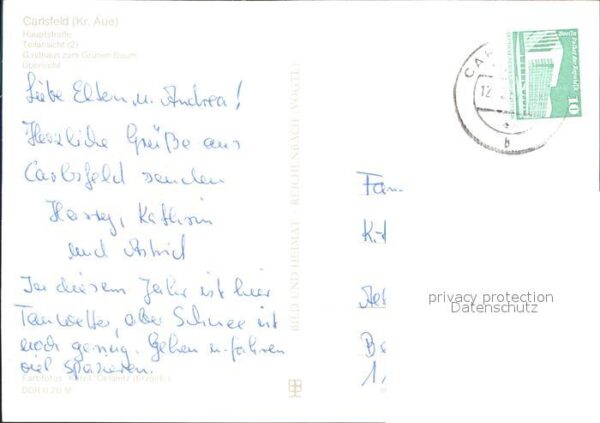 Carlsfeld (Kr. Aue)
Hauptstraße
Teilansicht (2)
Gasthaus zum Grünen Baum
Übersicht
Liebe Eltern u. Andrea!
Herzliche Grüße aus
Carlsfeld senden
Harry, Kathrin
und Astrid
In diesem Jahr ist hier
Tauwetter, aber Schnee ist
noch genug. Gehen u. fahren
viel spazieren.
DDR 0,20 M
BILD UND HEIMAT REICHENBACH (VOGTL)
CA
12
b
Berlin
Palast der Republik
10
Fam
K
privacy protection
Datenschutz
Be
1,